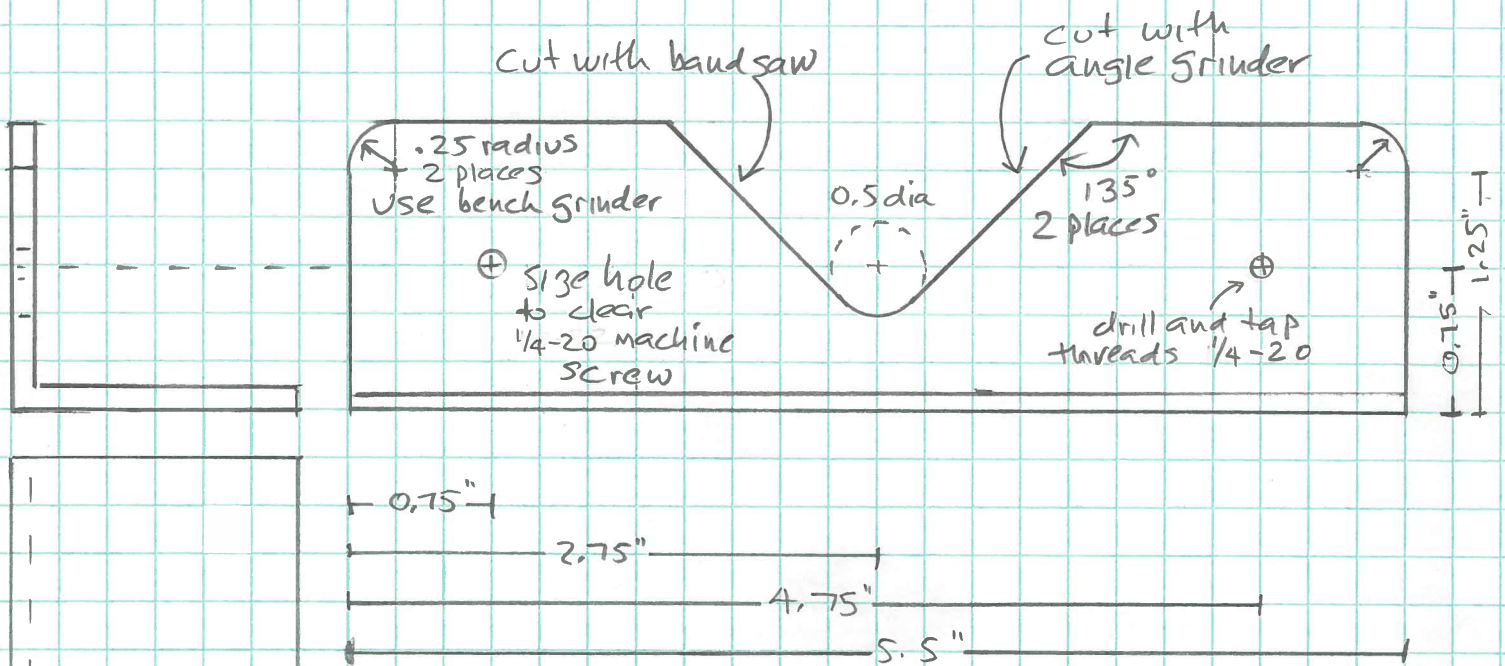 cut with band saw
cut with
angle grinder
.25 radius
2 places
use bench grinder
0.5 dia
135°
2 places
size hole
to clear
1/4-20 machine
screw
drill and tap
threads 1/4-20
0.75"
1.25"
0.75"
2.75"
4.75"
5.5"